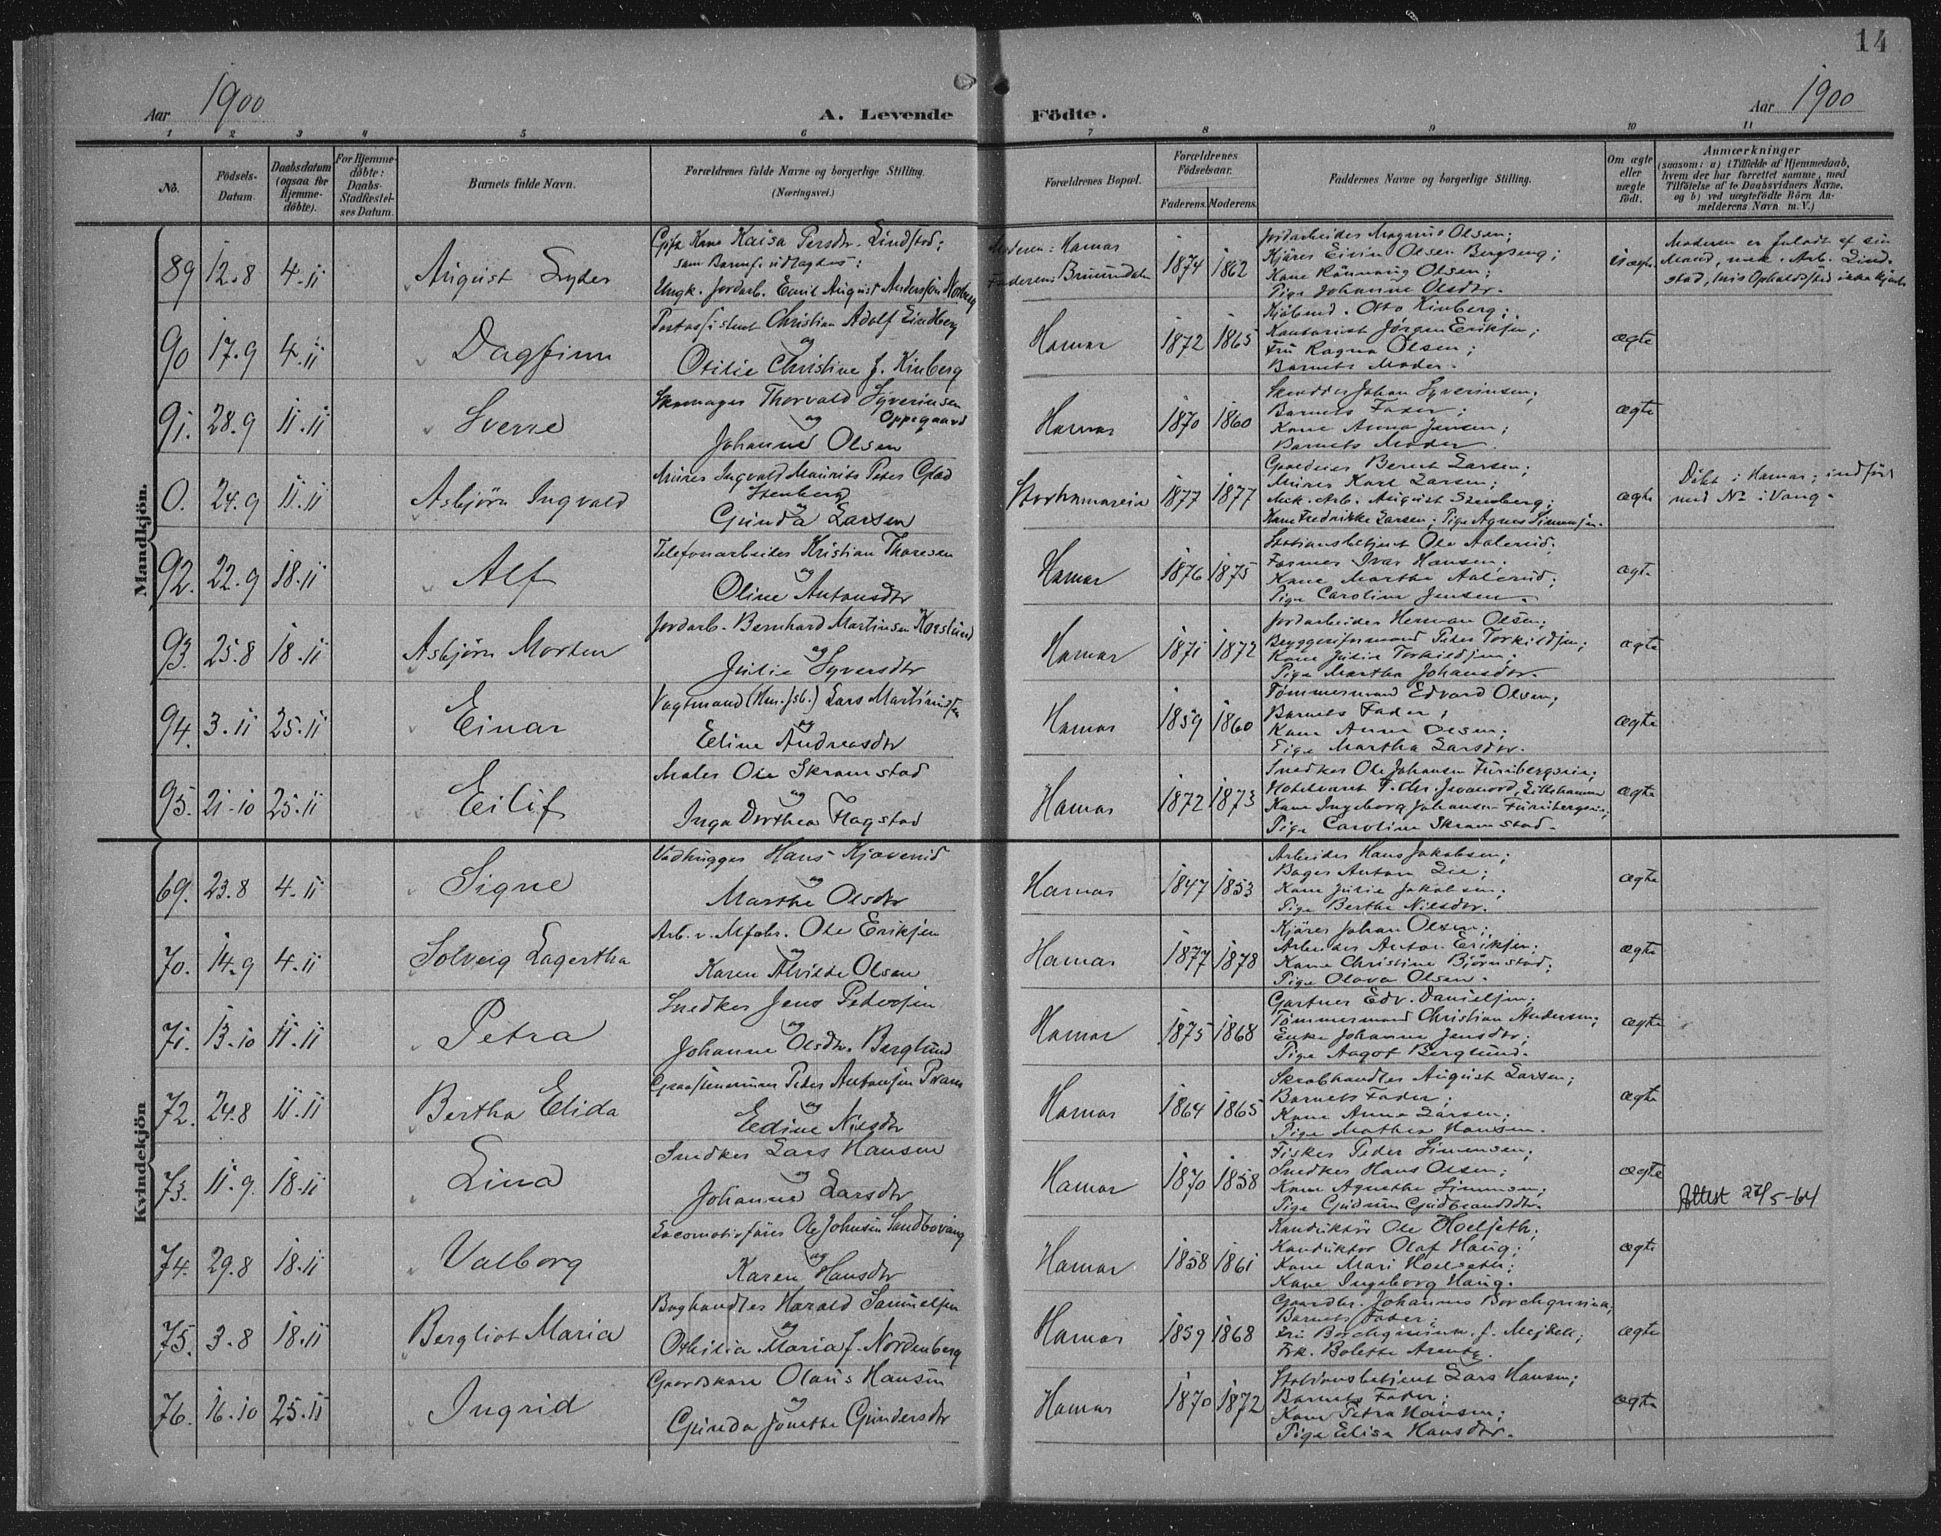 14
Aar 1900
A. Levende Födte.
Aar 1900
1 2 3 4 5 6 7 8 9 10 11
No.
Födsels-
Datum.
Daabsdatum
(ogsaa for
Hjemme-
döbte).
For Hjemme-
døbte:
Daabs-
Stadfæstel-
ses Datum.
Barnets fulde Navn.
Forældrenes fulde Navne og borgerlige Stilling.
(Næringsvei.)
Forældrenes Bopæl.
Forældrenes
Födselsaar.
Faderens. Moderens.
Faddernes Navne og borgerlige Stilling.
Om ægte
eller
uægte
födt.
Anmærkninger
(saasom: a) i Tilfælde af Hjemmedaab,
hvem der har forrettet samme, med
Tilföielse af to Daabsvidners Navne,
og b) ved uægtefödte Börn An-
melderens Navn m. V.)
Mandkjön.
89 12.8 4.11 August
Gift Kone Kaisa Persdtr. Lindstad;
som Barnef. udlagdes:
Ungk. Jordarb. Emil August Anderssen
Moderen: Hamar
Faderen: Brumundalen
1874 1862
Jordarbeider Magnus Olsen;
Kjörer Eivin Olsen Bergseng;
Kone Rönnaug Olsen;
Pige Johanne Olsdtr.
uægte
Moderen er forladt af sin
Mand, mek. Arb. Lind-
stad, hvis Opholdssted ikke kjendes
90 17.9 4.11 Dagfinn
Postassistent Christian Adolf Lindberg
og
Otilie Christine f. Kinberg
Hamar 1872 1865
Kjöbmd. Otto Kinberg;
Kontorist Jörgen Eriksen;
Fru Ragna Olsen;
Barnets Moder.
ægte
91. 28.9 11.11 Sverre
Skomager Thorvald Syverinsen
og Oppegaard
Johanne Olsen
Hamar 1870 1860
Skrædder Johan Syverinsen;
Barnets Fader;
Kone Anna Jensen;
Barnets Moder.
ægte
0. 24.9 11.11 Asbjörn Ingvald
Murer Ingvald Maurits Peter
Stenberg
og
Gunda Larsen
Storhamareie 1877 1877
Gaardeier Bernt Larsen;
Murer Karl Larsen;
Mek. Arb. August Stenberg;
Kone Fredrikke Larsen; Pige Agnes Simensen.
ægte
Döbt i Hamar; indfört
med No i Vang.
92. 22.9 18.11 Alf
Telefonarbeider Kristian Thoresen
og
Oline Antonsdtr
Hamar 1876 1875
Stationsbetjent Ole Aalerud;
Former Ivar Hansen;
Kone Marthe Aalerud;
Pige Caroline Jensen.
ægte
93. 25.8 18.11 Asbjörn Morten
Jordarb. Bernhard Martinsen Korslund
og
Julie Syversdtr
Hamar 1871 1872
Jordarbeider Herman Olsen;
Bryggeriformand Peder Torkildsen;
Kone Julie Torkildsen;
Pige Martha Johansdtr.
ægte
94. 3.11 25.11 Einar
Vagtmand Lars Martinsen
og
Eline Andreasdtr
Hamar 1859 1860
Tömmermand Edvard Olsen;
Barnets Fader;
Kone Anne Olsen;
Pige Martha Larsdtr.
ægte
95. 21.10 25.11 Eilif
Maler Ole Skramstad
og
Inga Dorthea Flagstad
Hamar 1872 1873
Snedker Ole Johansen Furubergseie;
Kone Ingeborg Johansen Furubergseie;
Pige Caroline Skramstad.
ægte
Kvindekjön
69. 23.8 4.11 Signe
Vedhugger Hans Kjæverud
og
Marthe Olsdtr
Hamar 1847 1853
Arbeider Hans Jakobsen;
Bager Anton Lie;
Kone Julie Jakobsen;
Pige Berthe Nilsdtr.
ægte
70. 14.9 4.11 Solveig Lagertha
Arb. v. Ole Eriksen
og
Karen Alvilde Olsen
Hamar 1877 1878
Kjörer Johan Olsen;
Arbeider Anton Eriksen;
Kone Christine Björnstad;
Pige Olava Olsen.
ægte
71. 13.10 11.11 Petra
Snedker Jens Pedersen
og
Johanne Olsdtr. Berglund
Hamar 1875 1868
Gartner Edv. Danielsen;
Tömmermand Christian Andersen;
Enke Johanne Jensdtr;
Pige Aagot Berglund.
ægte
72. 24.8 11.11 Bertha Elida
Graastensmurer Peder Antonsen Pram
og
Edine Nilsdtr
Hamar 1864 1865
Skrabhandler August Larsen;
Barnets Fader;
Kone Anne Larsen;
Pige Mathea Hansen.
ægte
73. 11.9. 18.11 Lina
Snedker Lars Hansen
og
Johanne Larsdtr
Hamar 1870 1858
Fisker Peder Simensen;
Snedker Hans Olsen;
Kone Agnethe Simensen;
Pige Gudrun Gudbrandsdtr.
ægte
Attest 27/5-64
74. 29.8 18.11 Valborg
Locomotivförer Ole Johnsen Sandbovang
og
Karen Hansdtr
Hamar 1858 1861
Konduktör Ole Hoelseth;
Konduktör Olaf Haug;
Kone Mari Hoelseth;
Kone Ingeborg Haug.
ægte
75. 3.8 18.11 Bergliot Maria
Boghandler Harald Samuelsen
og
Othilia Maria f. Nordenberg
Hamar 1859 1868
Gaardbr. Johannes Borchgrevink;
Barnets Fader;
Fru Borchgrevink f. Mejdell;
Frk. Bolette Arentz.
ægte
76. 16.10 25.11 Ingrid
Gaardskarl Olaus Hansen
og
Gunda Jonette Gundersdtr
Hamar 1870 1872
Stationsbetjent Lars Hansen;
Barnets Fader;
Kone Petra Hansen;
Pige Elisa Hansdtr.
ægte